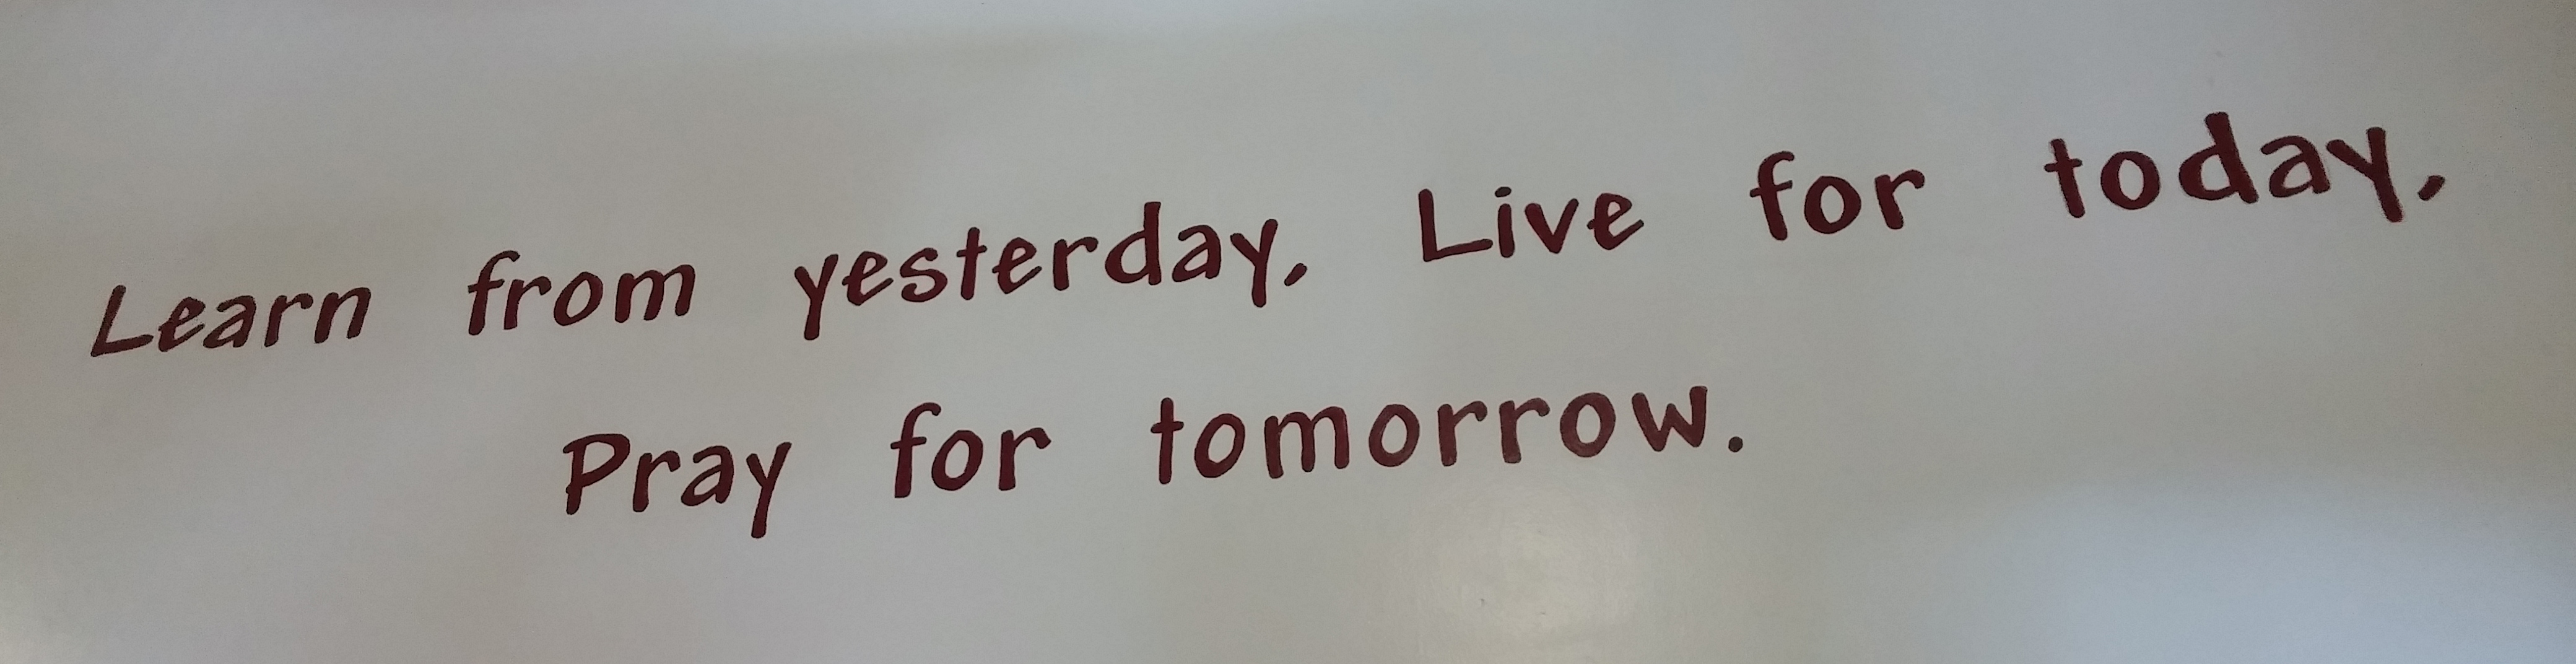 Learn from yesterday, Live for today,
Pray for tomorrow.